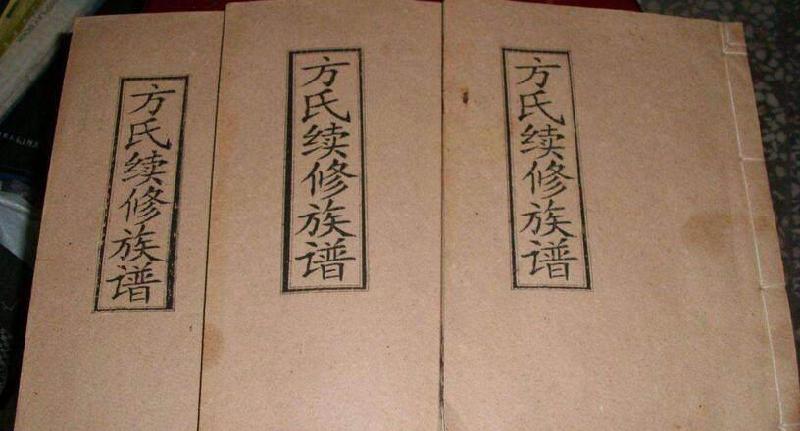 方氏续修族谱
方氏续修族谱
方氏续修族谱